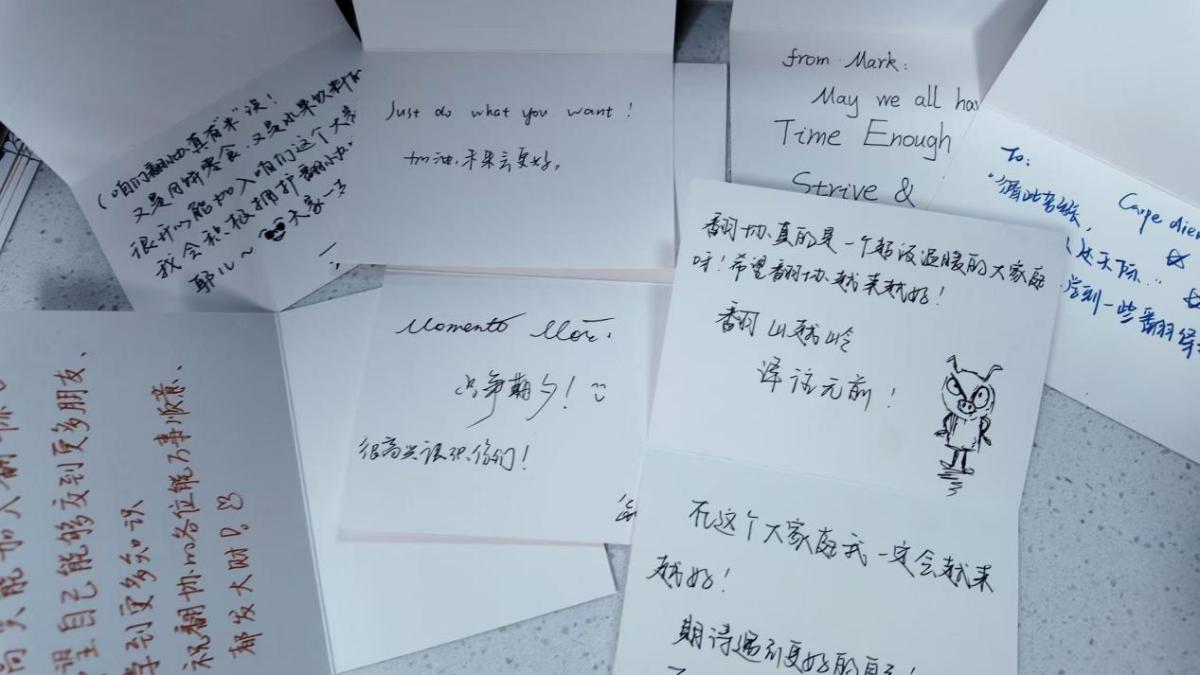 (咱们翻协真有"来"误!
又是月饼零食,又是水果饮料
很开心能加入咱们这个大家
我会积极拥护翻协
耶~ 大家一
Just do what you want!
加油,未来会更好。
from Mark:
May we all ha
Time Enough
Strive &
To:
Carpe diem
天际...
学到一些翻译
Momento Mori.
只争朝夕!
很高兴认识你们!
翻协真的是一个超级温暖的大家庭
呀!希望翻协越来越好!
翻山越岭
译往无前!
在这个大家庭我一定会越来
越好!
期待遇到更好的自己!
高兴能加入翻协
望自己能够交到更多朋友、
学到更多知识
祝翻协各位能万事顺意、
都发大财!